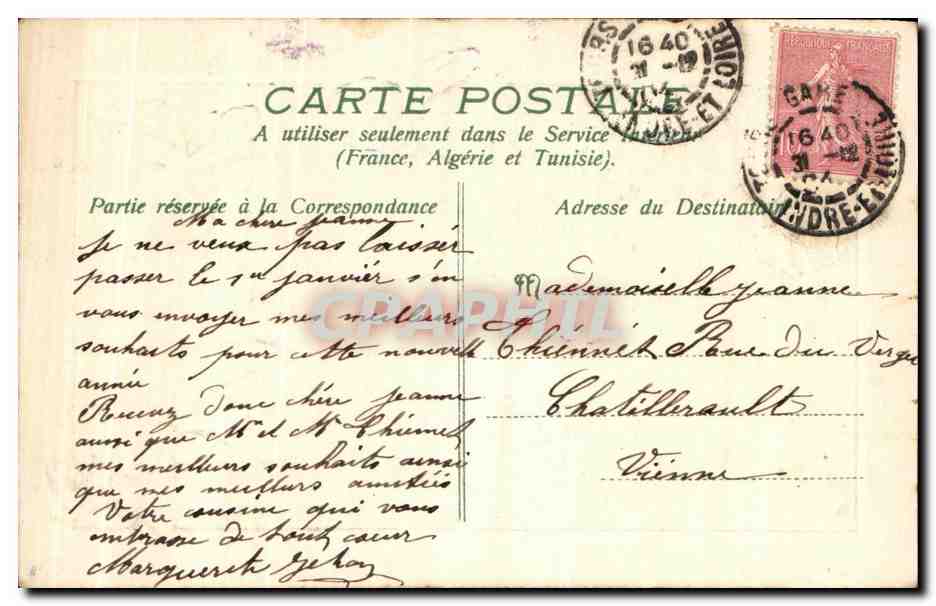 CARTE POSTALE
A utiliser seulement dans le Service Intérieur
(France, Algérie et Tunisie).
Partie réservée à la Correspondance
Ma chère Jeanne
Je ne veux pas laisser
passer le 1er janvier s'en
vous envoyer mes meilleurs
souhaits pour cette nouvelle
année
Recevez donc chère Jeanne
aussi que Mr et Me Thiennet
mes meilleurs souhaits ainsi
que mes meilleurs amitiés
Votre cousine qui vous
embrasse de tout coeur
Marguerite
Adresse du Destinataire
Mademoiselle Jeanne
Thiennet Rue du Verger
Chatillerault
Vienne
REPUBLIQUE FRANÇAISE
10
16 40
31 -12
04
INDRE-ET-LOIRE
GARE
16 40
31 -12
04
INDRE-ET-LOIRE
CPAPHIL